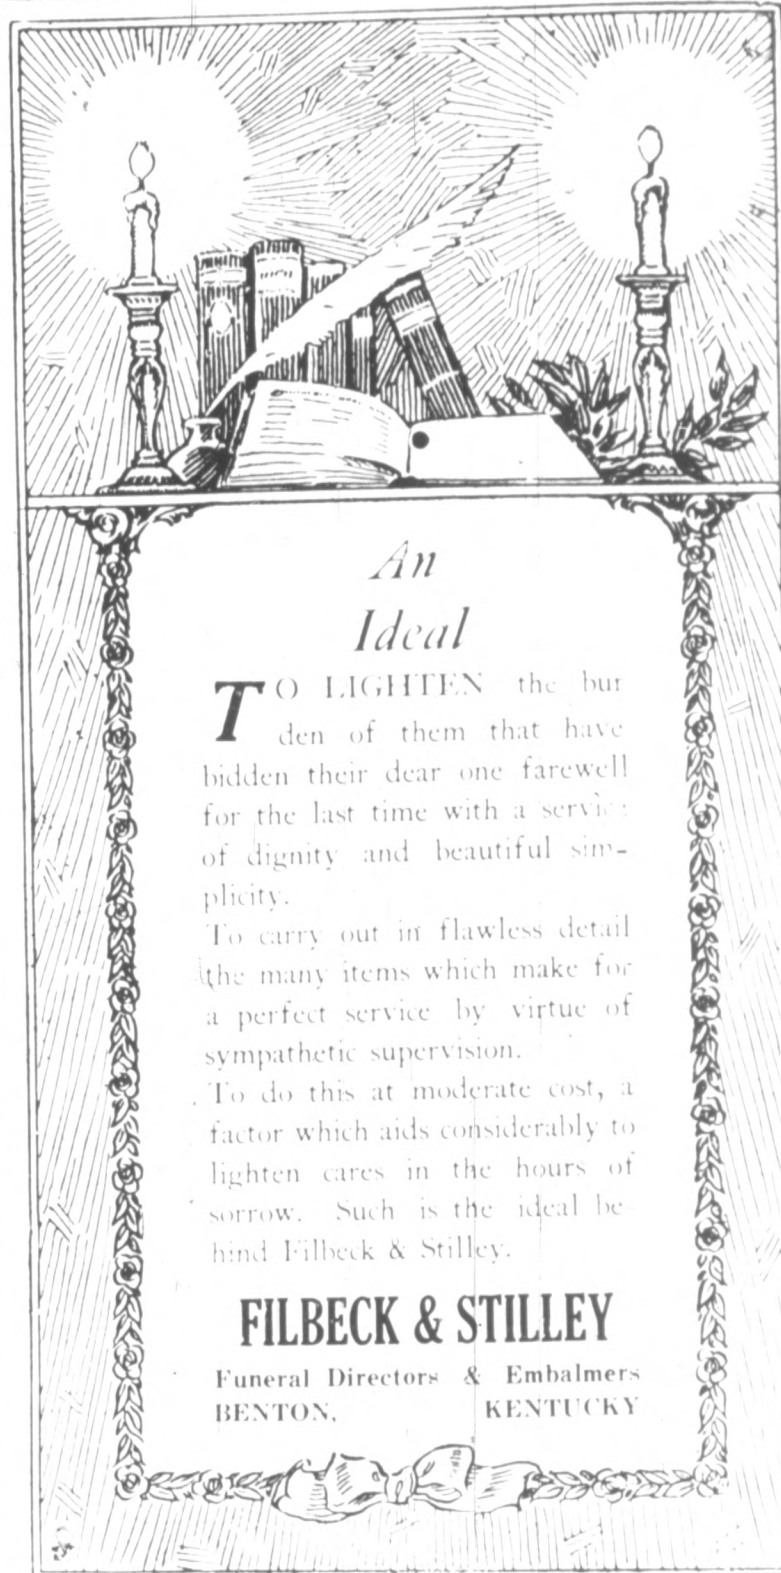 An
Ideal
TO LIGHTEN the bur
den of them that have
bidden their dear one farewell
for the last time with a service
of dignity and beautiful sim-
plicity.
To carry out in flawless detail
the many items which make for
a perfect service by virtue of
sympathetic supervision.
To do this at moderate cost, a
factor which aids considerably to
lighten cares in the hours of
sorrow. Such is the ideal be
hind Filbeck & Stilley.
FILBECK & STILLEY
Funeral Directors & Embalmers
BENTON, KENTUCKY